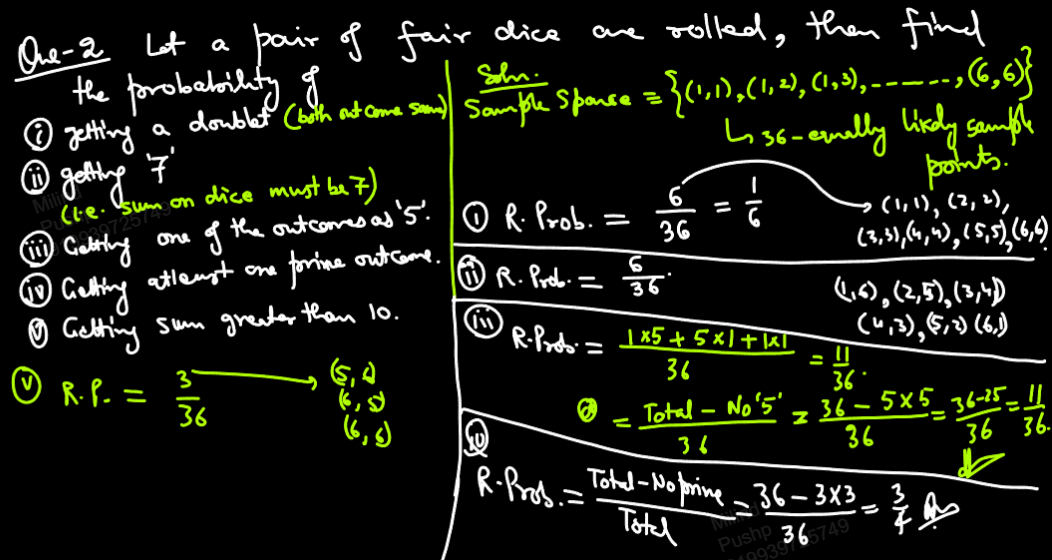 Que-2 Let a pair of fair dice are rolled, then find
the probability of
(i) getting a doublet (both outcome same)
(ii) getting '7'
(i.e. sum on dice must be 7)
(iii) Getting one of the outcomes as '5'.
(iv) Getting atleast one prime outcome.
(v) Getting sum greater than 10.
(v) R.P. = 3/36 → (5, 6)
(6, 5)
(6, 6)
Soln.
Sample Spause = {(1,1), (1,2), (1,3), -------, (6,6)}
↳ 36-equally likely sample
points.
(i) R. Prob. = 6/36 = 1/6 → (1,1), (2,2),
(3,3), (4,4), (5,5), (6,6)
(ii) R. Prob. = 6/36. (1,6), (2,5), (3,4)
(4,3), (5,2) (6,1)
(iii) R.Prob. = 1×5 + 5×1 + 1×1/36 = 11/36.
= Total - No '5'/36 = 36 - 5×5/36 = 36-25/36 = 11/36.
(iv) R.Prob. = Total - No prime/Total = 36 - 3×3/36 = 3/4 Ans
Milind
Pushp
919939725749
Milind
Pushp
919939725749